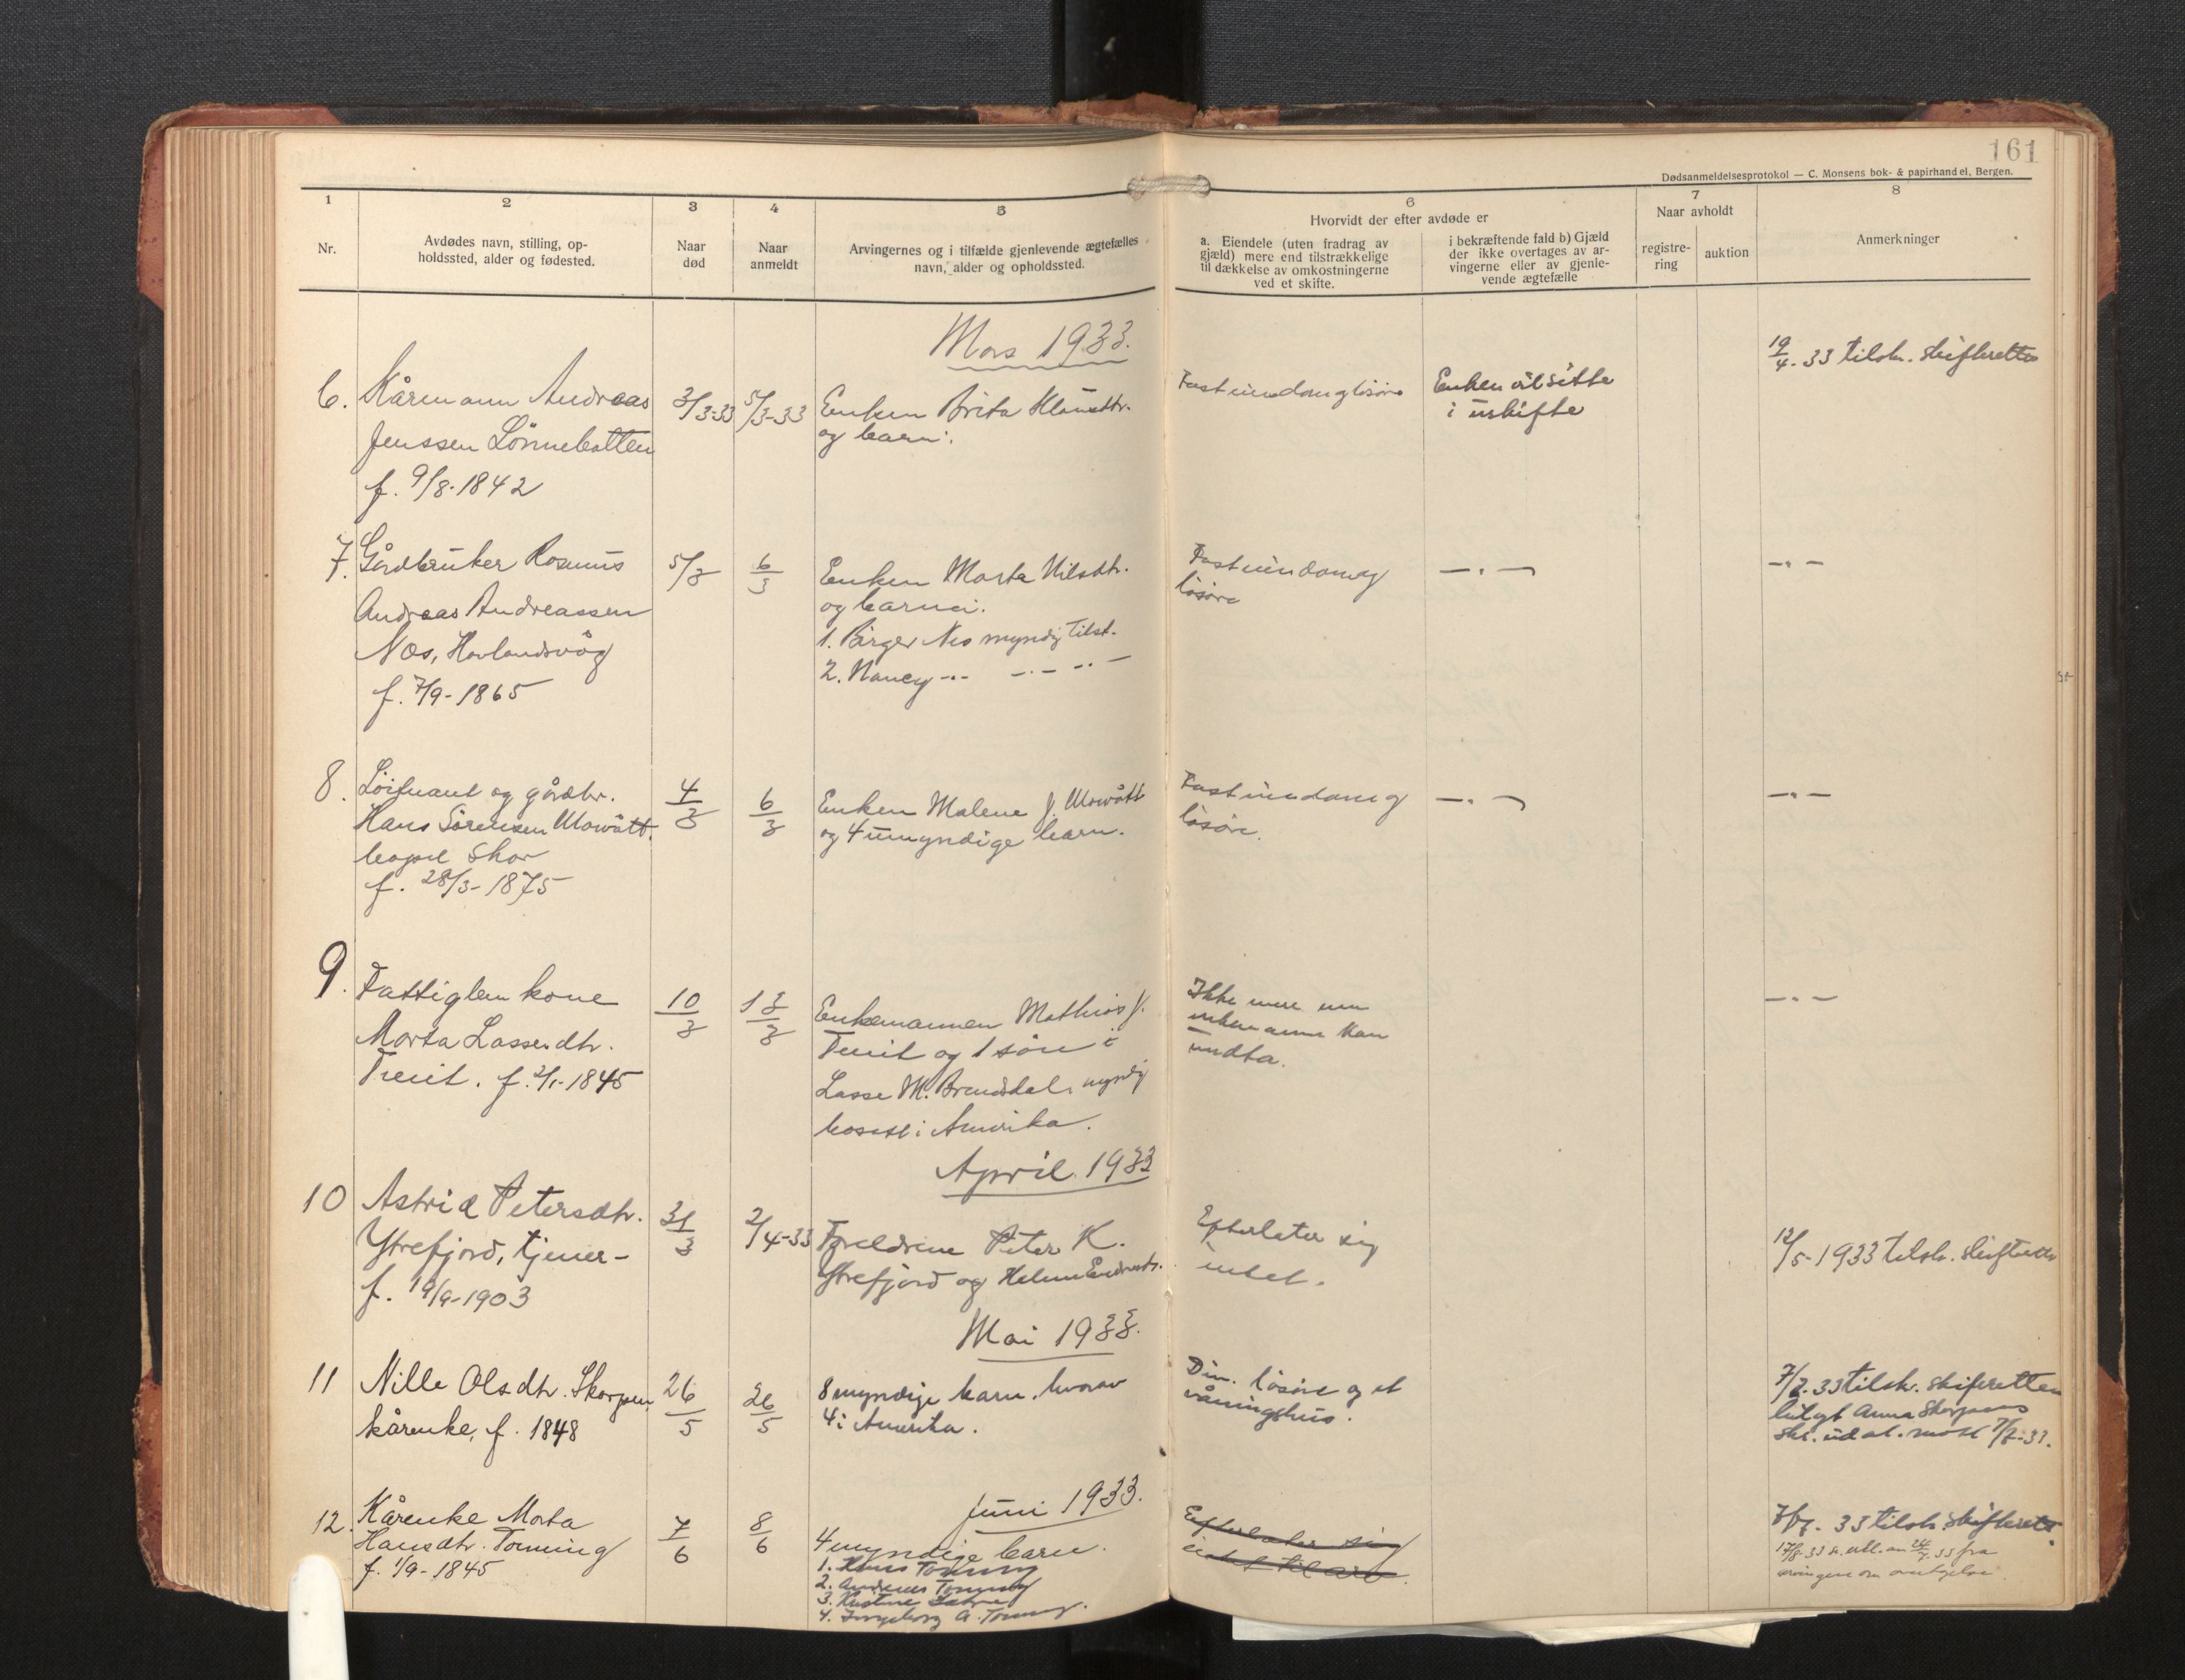 161
Dødsanmeldelsesprotokol — C. Monsens bok- & papirhandel, Bergen.
1
2
3
4
5
6
7
8
Nr.
Avdødes navn, stilling, op-
holdssted, alder og fødested.
Naar
død
Naar
anmeldt
Arvingernes og i tilfælde gjenlevende ægtefælles
navn, alder og opholdssted.
Hvorvidt der efter avdøde er
a. Eiendele (uten fradrag av
gjæld) mere end tilstrækkelige
til dækkelse av omkostningerne
ved et skifte.
i bekræftende fald b) Gjæld
der ikke overtages av ar-
vingerne eller av gjenle-
vende ægtefælle
Naar avholdt
registre-
ring
auktion
Anmerkninger
Mars 1933.
19/4-33 tilskr. skifteretten
6. Kårmann Andreas
Jenssen Lönnebotten
f. 9/8-1842
3/3-33
5/3-33
Enken Brita
og barn.
Fast eiendom og lösöre
Enken vil sitte
i uskifte
7. Gårdbruker Rasmus
Andreas Andreassen
Nes, Havlandsvåg
f. 7/9-1865
5/3
6/3
Enken Marta Nilsdtr.
og barna.
1. Birger Nes myndig tilst.
2. Nancy -"- -"- -"-
Fast eiendom og
lösöre
-"-
-"-
8. Löitnant og gårdbr.
Hans Sörensen
Skor
f. 28/3-1875
4/3
6/3
Enken Malene J.
og 4 umyndige barn.
Fast eiendom og
lösöre.
-"-
-"-
9. Fattiglem kone
Marta Lassesdtr.
f. 2/1-1845
10/3
13/3
Enkemannen Mathias J.
og 1 sön i
Lasse M. myndig
bosatt i Amerika.
Ikke mere enn
enkemannen kan
undta.
-"-
April 1933
10 Astrid Petersdtr.
Ytrefjord, tjener-
f. 19/9-1903
31/3
2/4-33
Foreldrene Peter K.
Ytrefjord og
Efterlater sig
intet.
12/5-1933 tilskr. skifteretten
Mai 1933.
11 Nille Olsdtr. Skorpen
kårenke, f. 1848
26/5
26/5
8 myndige barn, hvorav
4 i Amerika.
Div. lösöre og et
våningshus.
7/7-33 tilskr. skifteretten
Anna Skorpens
Juni 1933.
12. Kårenke Marta
Hansdtr. Tonning
f. 1/9-1845
7/6
8/6
4 myndige barn.
1. Hans Tonning
2. Andreas Tonning
3. Kristine
4. Ingeborg A. Tonning.
Efterlater sig
intet til arv.
7/7-33 tilskr. skifterett.